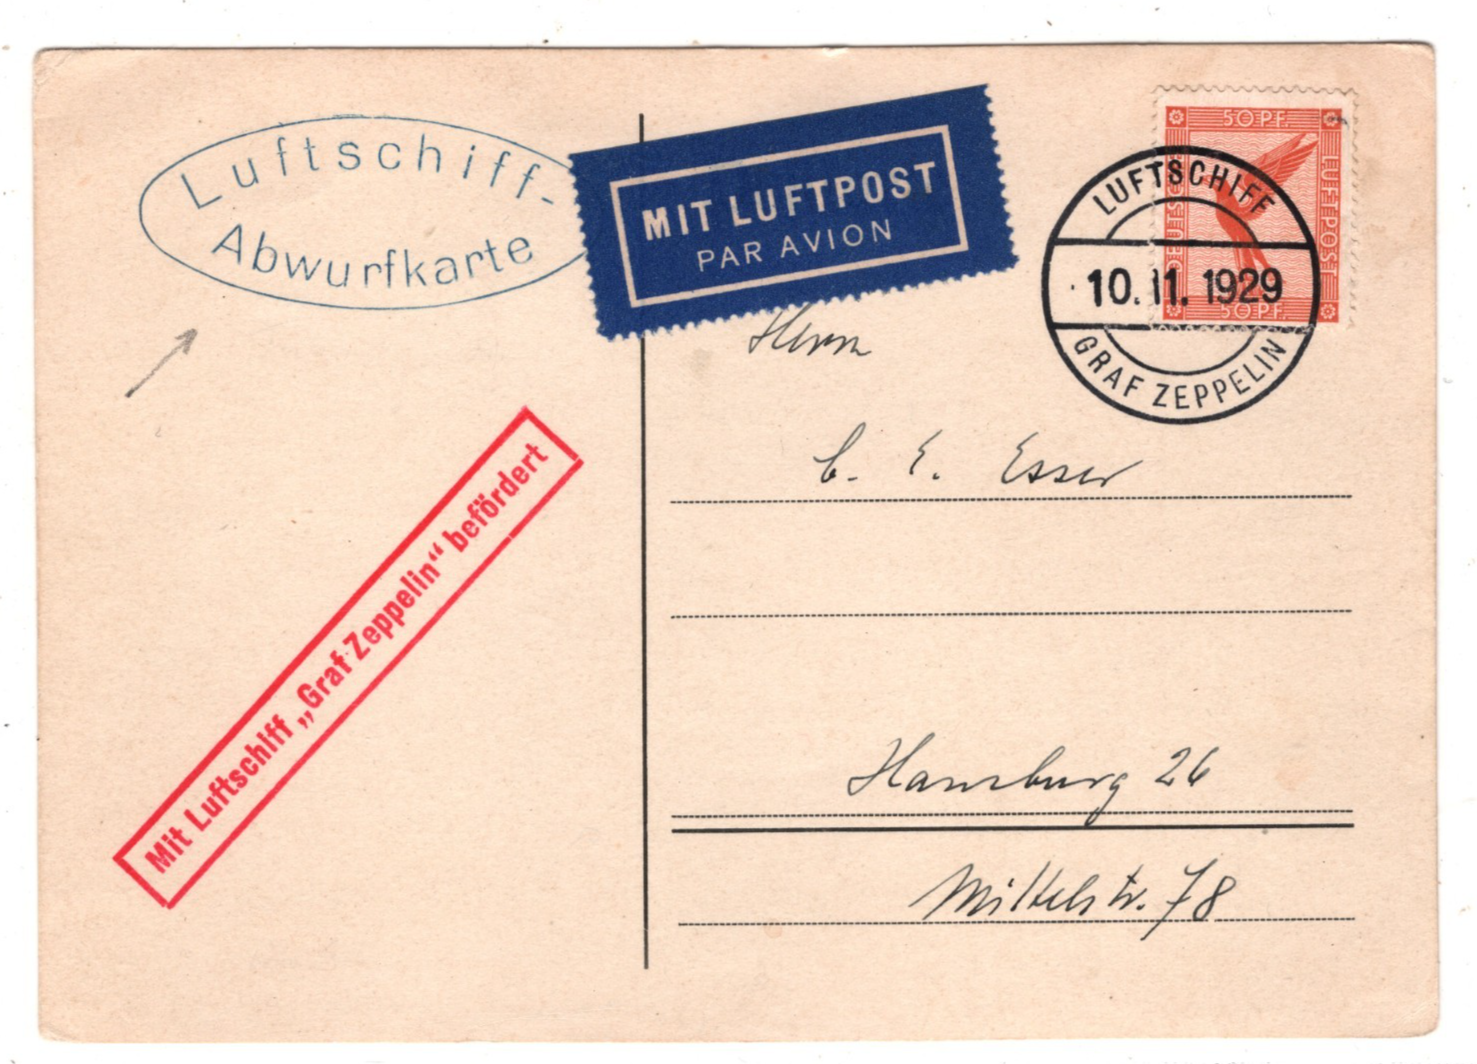 Luftschiff-
Abwurfkarte
MIT LUFTPOST
PAR AVION
50 PF.
LUFTPOST
50 PF.
LUFTSCHIFF
10. 11. 1929
GRAF ZEPPELIN
Herrn
C. E. Esser
Mit Luftschiff „Graf Zeppelin“ befördert
Hamburg 26
Mittelstr. 78